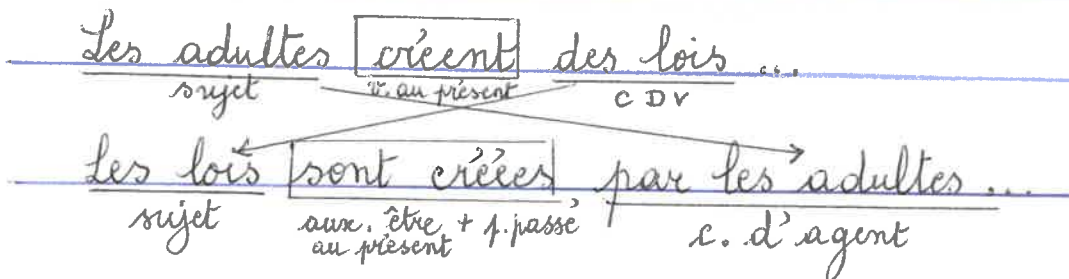 Les adultes créent des lois ...
sujet v. au présent CDV
Les lois sont créées par les adultes ...
sujet aux. être + p. passé c. d'agent
au présent